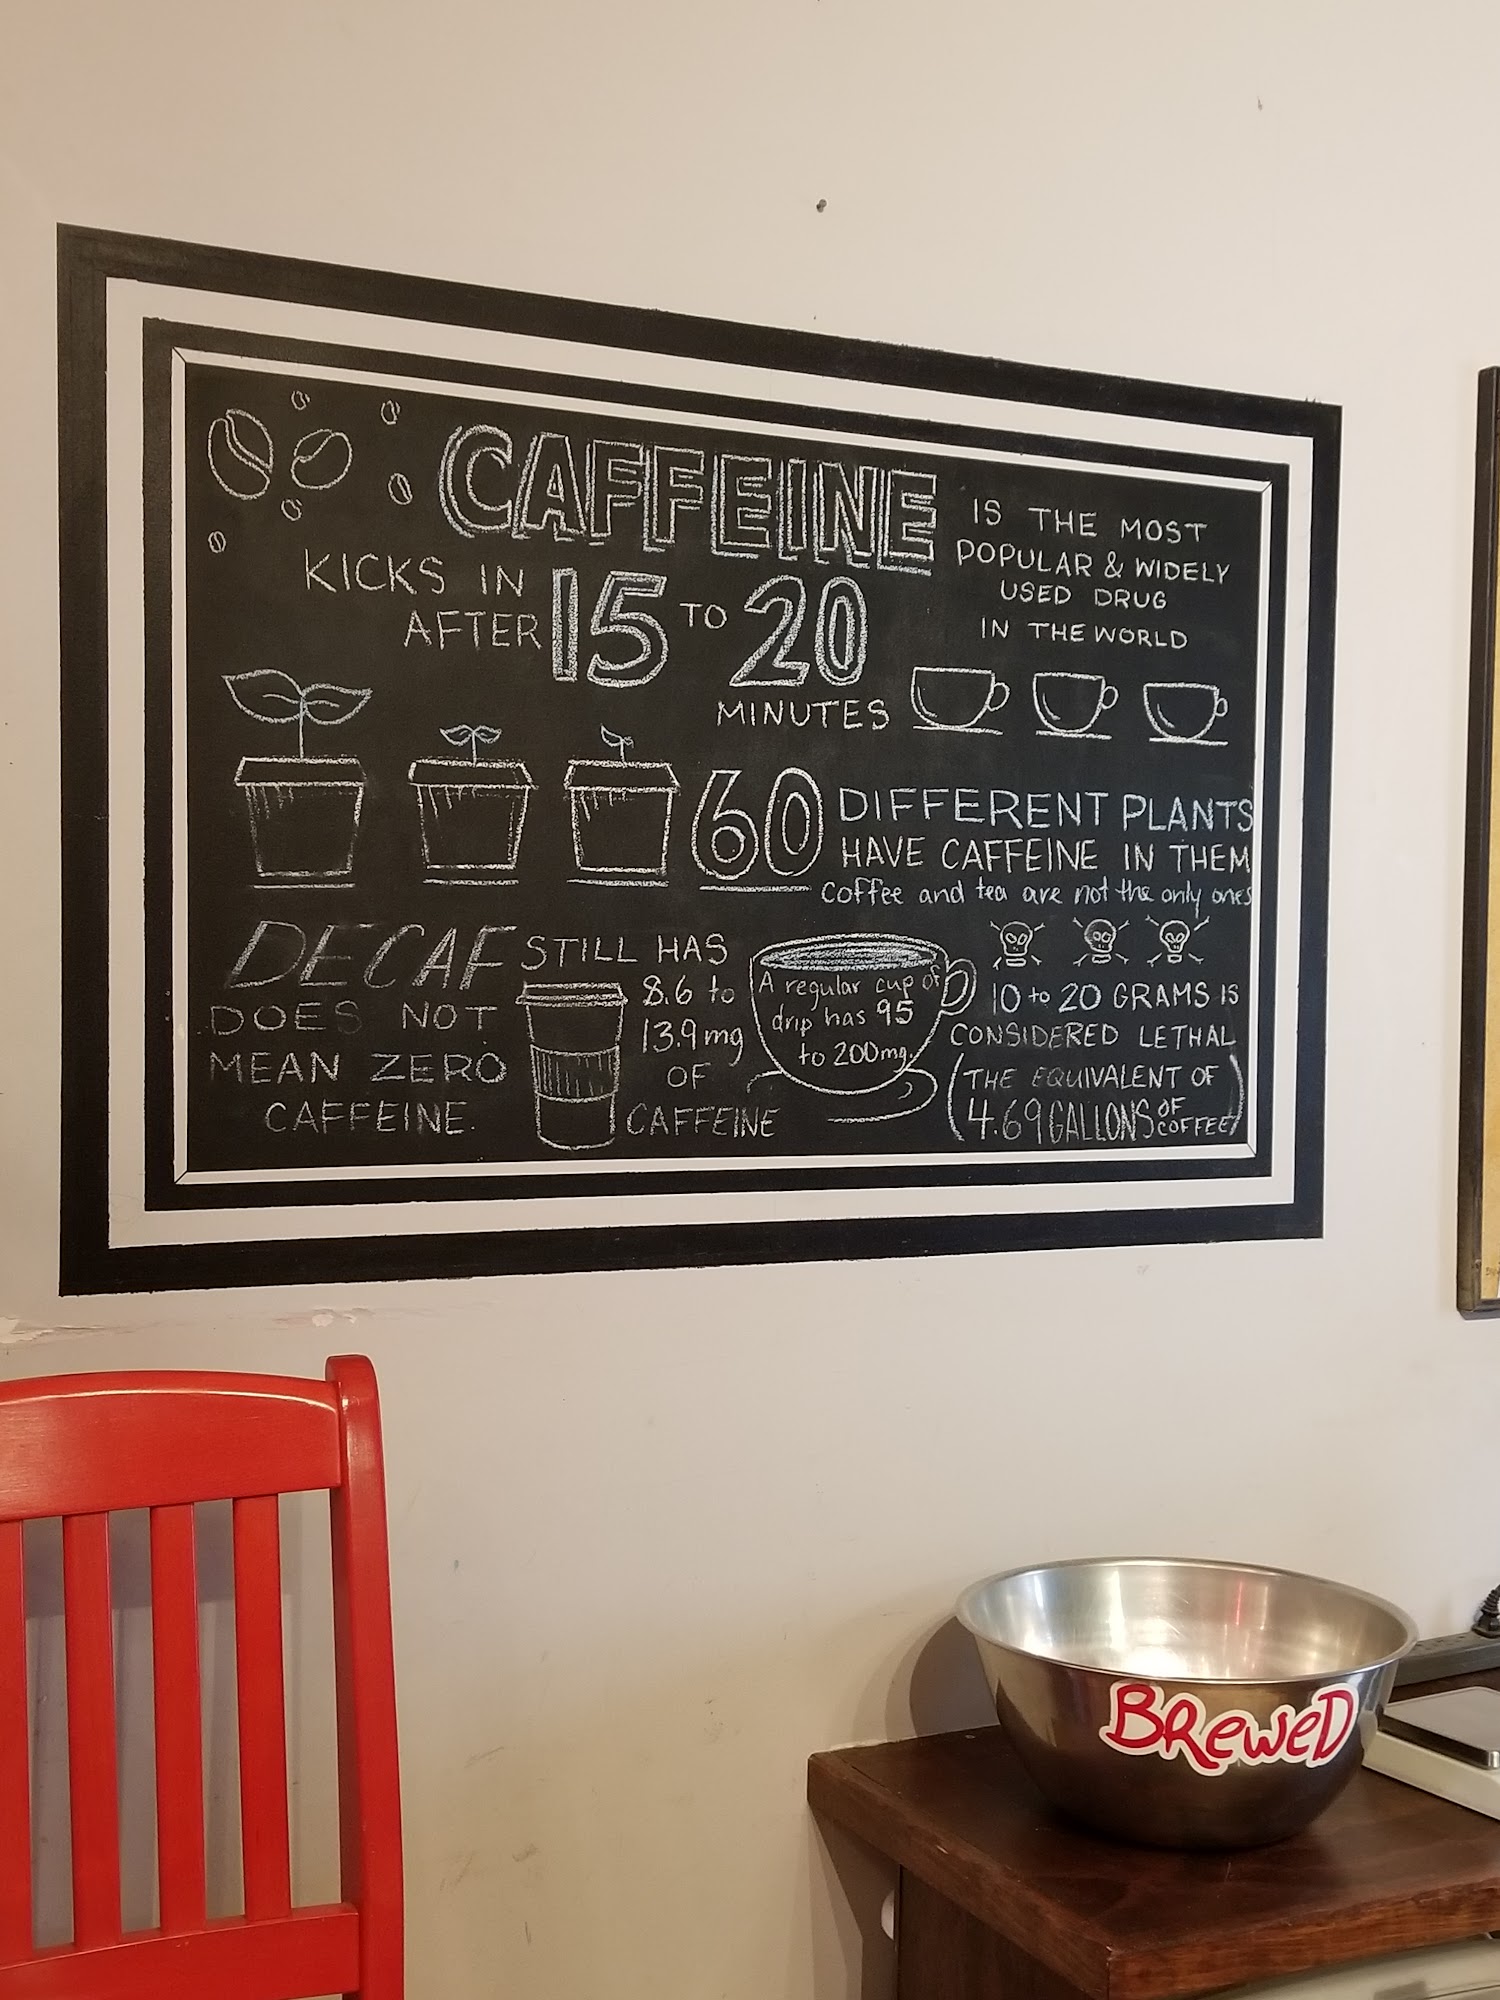 CAFFEINE
KICKS IN
AFTER 15 TO 20
MINUTES
IS THE MOST
POPULAR & WIDELY
USED DRUG
IN THE WORLD
60 DIFFERENT PLANTS
HAVE CAFFEINE IN THEM
Coffee and tea are not the only ones
DECAF
DOES NOT
MEAN ZERO
CAFFEINE.
STILL HAS
8.6 to
13.9mg
OF
CAFFEINE
A regular cup of
drip has 95
to 200mg.
10 to 20 GRAMS IS
CONSIDERED LETHAL
(THE EQUIVALENT OF
4.69 GALLONS OF COFFEE)
BReweD